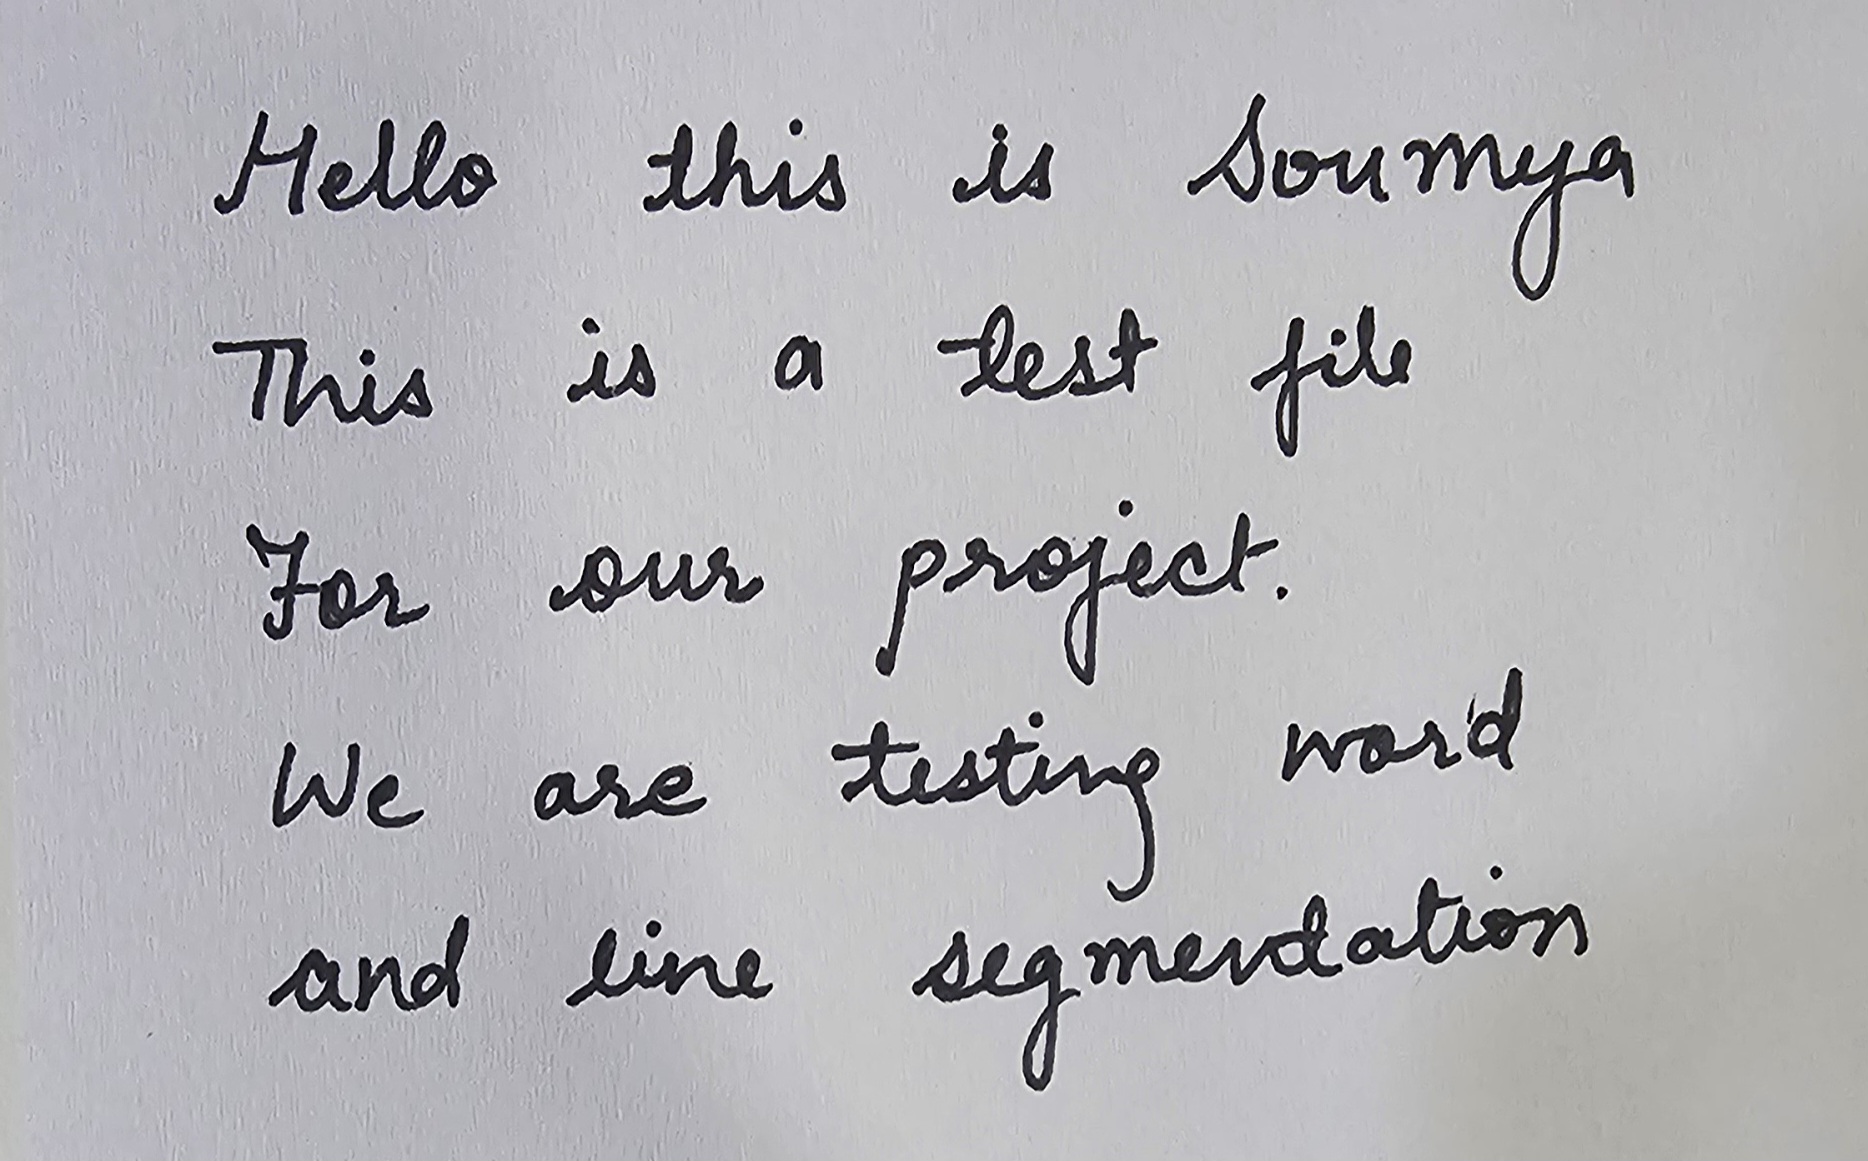 Hello this is Soumya
This is a test file
For our project.
We are testing word
and line segmentation